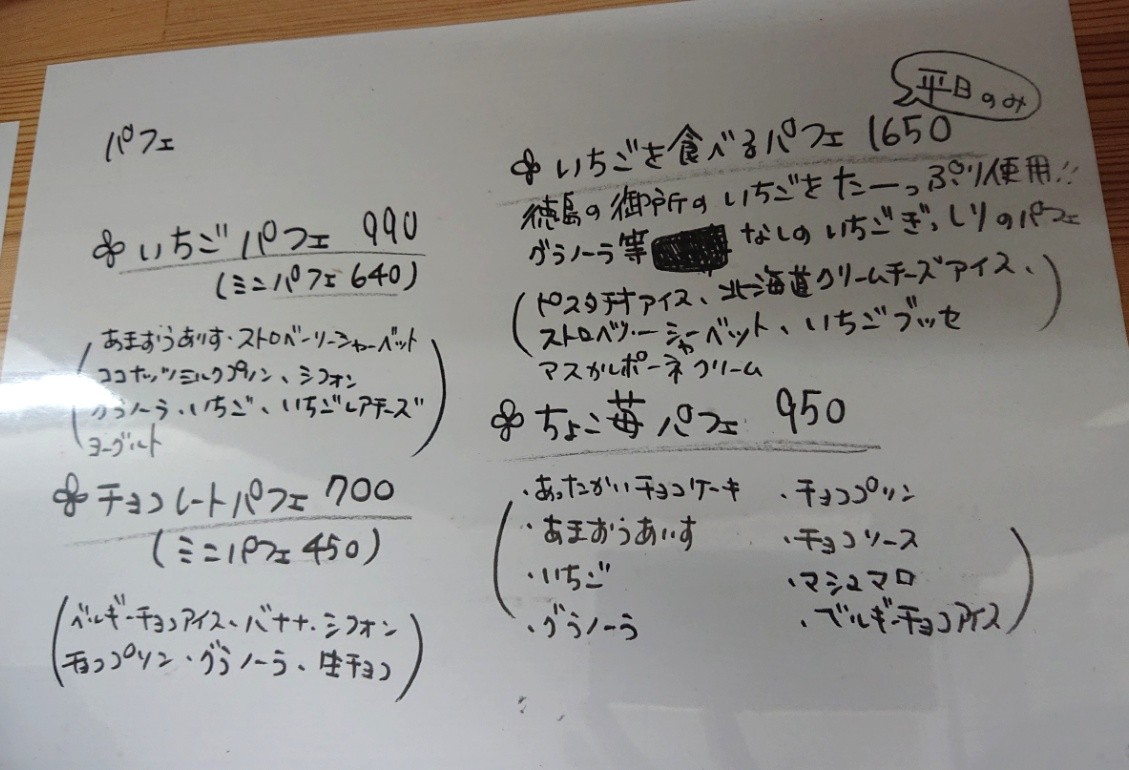 パフェ
いちごパフェ 990
(ミニパフェ 640)
(あまおうあいす・ストロベーリーシャーベット
ココナッツミルクプリン、シフォン
グラノーラ、いちご、いちごレアチーズ
ヨーグルト)
チョコレートパフェ 700
(ミニパフェ 450)
(ベルギーチョコアイス、バナナ、シフォン
チョコプリン・グラノーラ、生チョコ)
平日のみ
いちごを食べるパフェ 1650
徳島の御所のいちごをたーっぷり使用!!
グラノーラ等 なしのいちごぎっしりのパフェ
(ピスタチオアイス、北海道クリームチーズアイス、
ストロベリーシャーベット、いちごブッセ
マスカルポーネクリーム)
ちょこ苺パフェ 950
(・あったかいチョコケーキ
・あまおうあいす
・いちご
・グラノーラ
・チョコプリン
・チョコソース
・マシュマロ
・ベルギーチョコアイス)